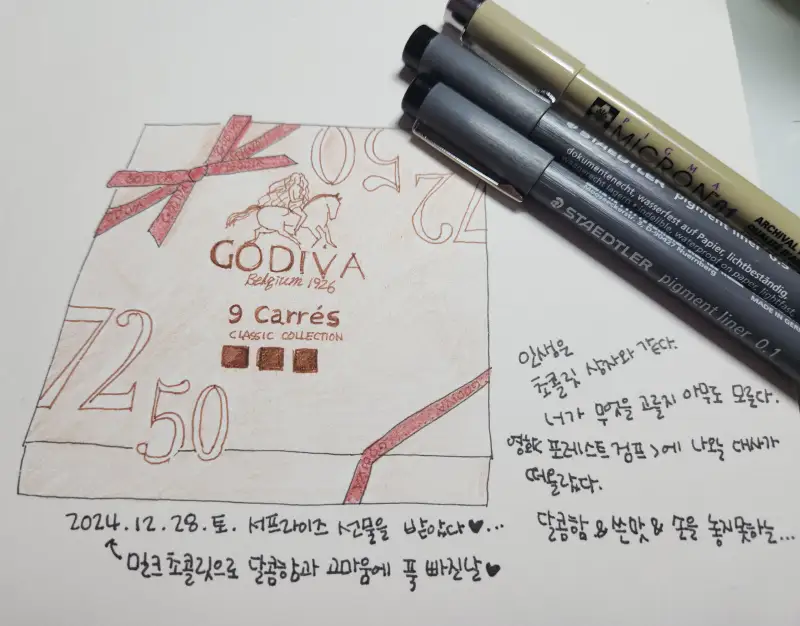 GODIVA
50
72
GODIVA
Belgium 1926
9 Carrés
CLASSIC COLLECTION
72
50
GODIVA
PIGMA
MICRON 01
ARCHIVAL
STAEDTLER pigment liner 0.3
dokumentenecht, wasserfest auf Papier, lichtbeständig,
indelible, waterproof on paper, lightfast,
MADE IN GER
STAEDTLER pigment liner 0.1
인생은
초콜릿 상자와 같다.
너가 무엇을 고를지 아무도 모른다.
영화< 포레스트검프>에 나오는 대사가
떠올랐다.
달콤함 & 쓴맛 & 손을 놓지못하는...
2024.12.28.토. 서프라이즈 선물을 받았다♥...
밀크초콜릿으로 달콤함과 고마움에 푹 빠진날♥